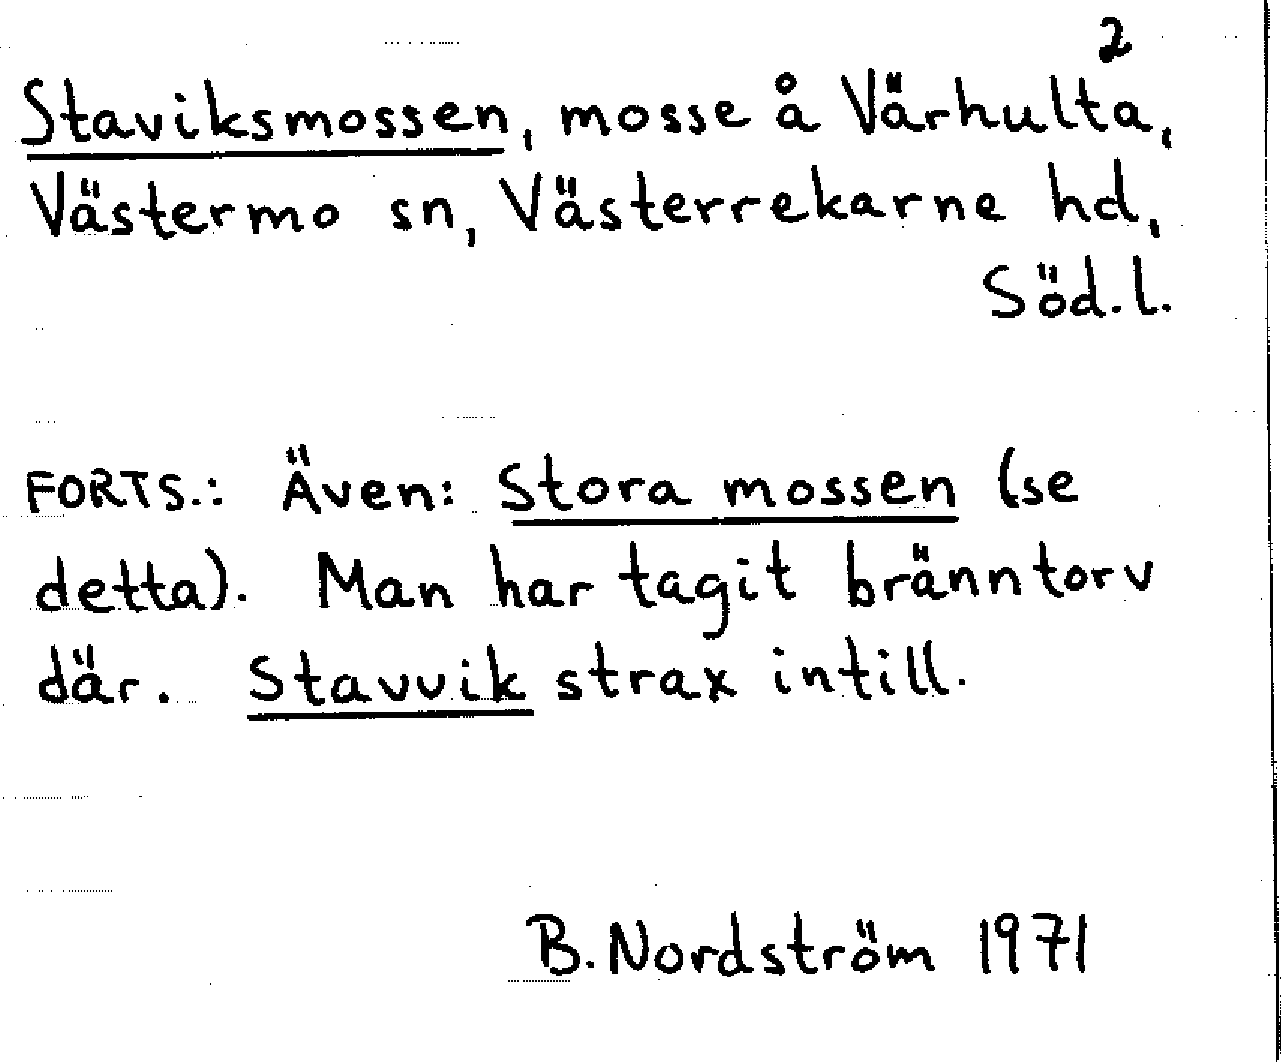 2
Staviksmossen, mosse å Värhulta,
Västermo sn, Västerrekarne hd,
Söd.l.
FORTS.: Även: Stora mossen (se
detta). Man har tagit bränntorv
där. Stavvik strax intill.
B. Nordström 1971